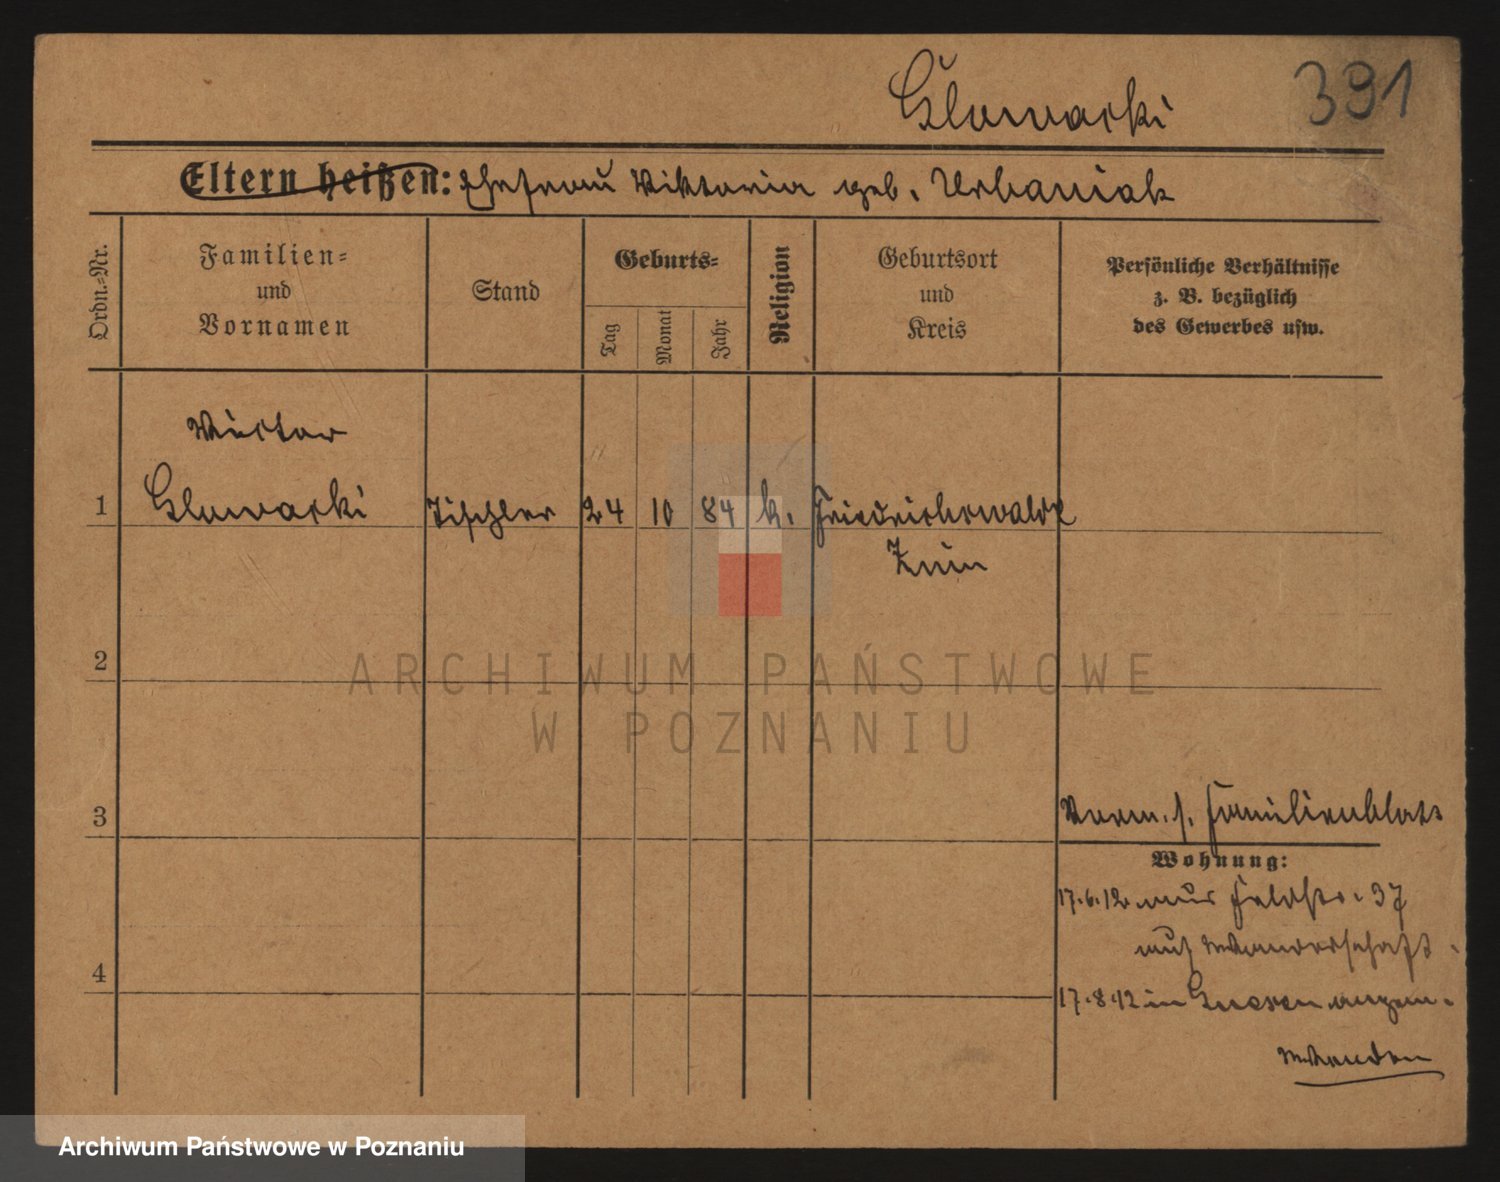 Glowacki
391
Eltern heißen: Ehefrau Viktoria geb. Urbaniak
Ordn.-Nr.
Familien-
und
Vornamen
Stand
Geburts-
Tag
Monat
Jahr
Religion
Geburtsort
und
Kreis
Persönliche Verhältnisse
z. B. bezüglich
des Gewerbes usw.
Victor
1 Glowacki Tischler 24 10 84 k. Friedrichswalde
Znin
2
ARCHIWUM PAŃSTWOWE
W POZNANIU
3
Verm. s. Familienblatt
Wohnung:
17.6.12 aus Feldstr. 37
auf Wanderschaft.
4
17.8.12 in Gnesen angem.
Archiwum Państwowe w Poznaniu